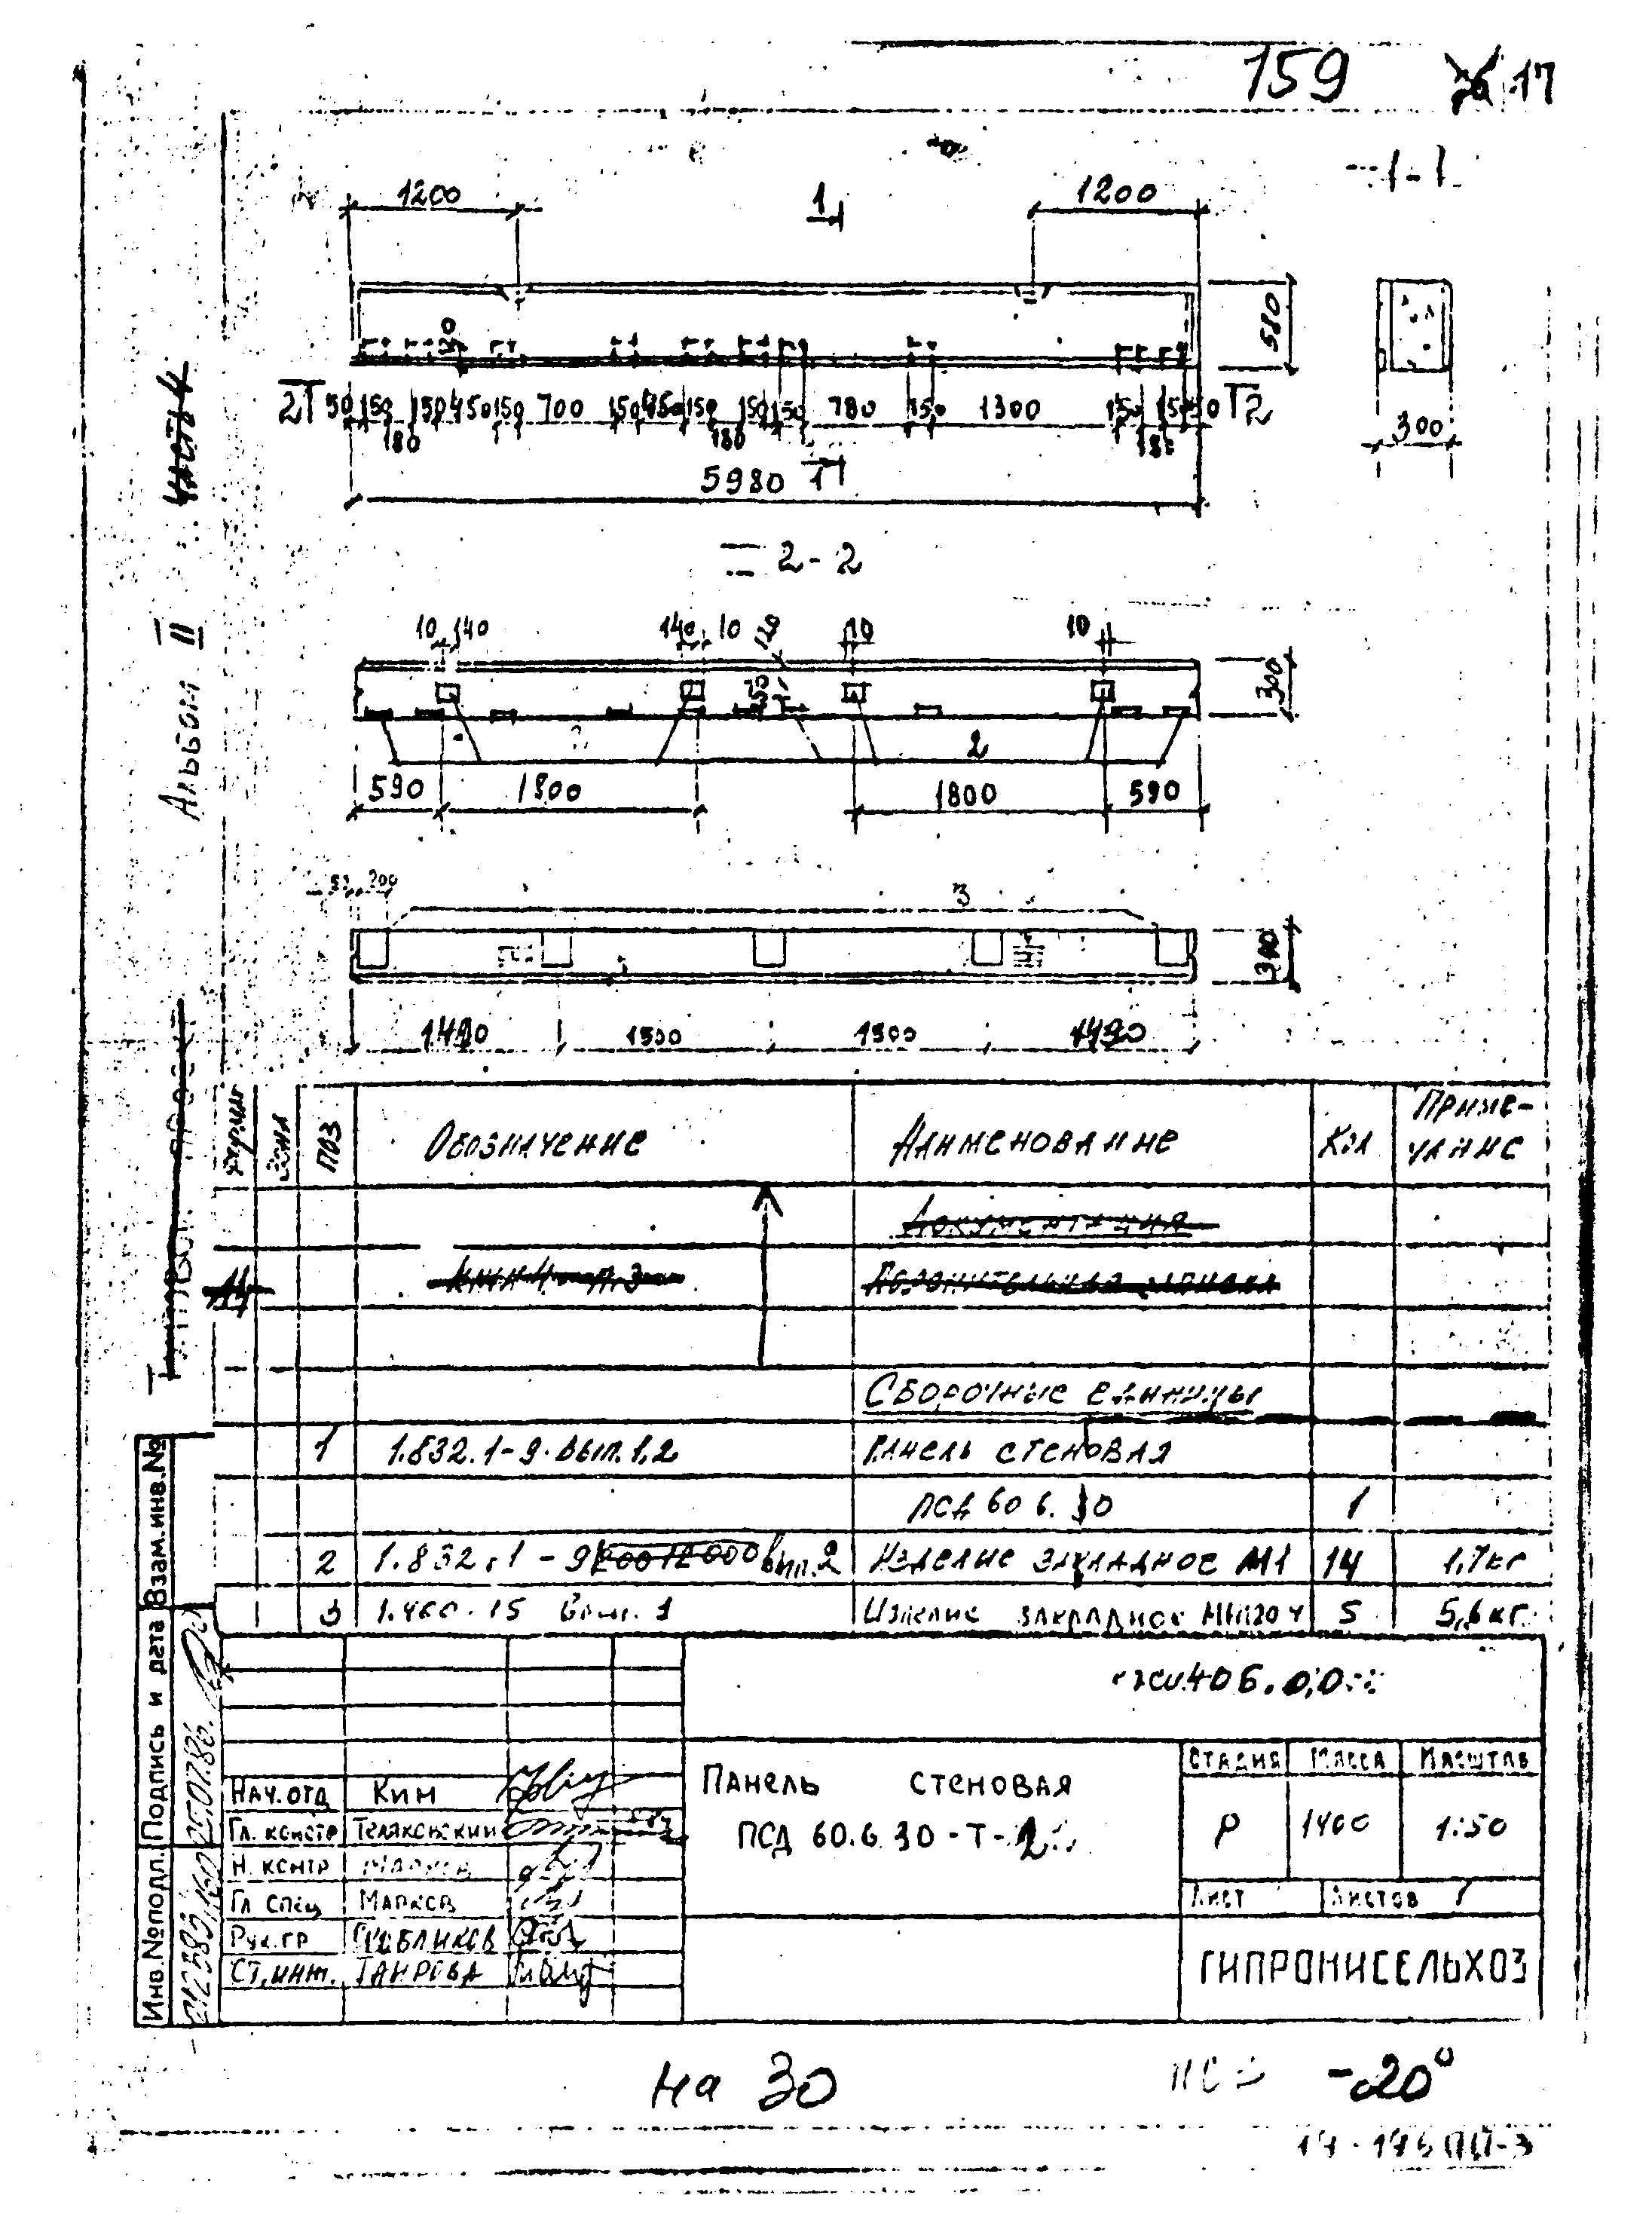 159 17
1-1
1200 1 1200
580
2 50 150 150 450 150 700 150 450 150 150 150 780 150 1300 150 150 50 2
180 180 180
300
5980 1
2-2
10 140 140 10 120 10 10
300
2
590 1800 1800 590
50 200 3
300
1490 1500 1500 1490
Альбом II
Часть 4
Типовой проект
Формат Зона Поз Обозначение Наименование Кол Приме-
чание
Документация
А4 Пояснительная записка
Сборочные единицы
1 1.832.1-9. вып. 1,2 Панель стеновая
ПСД 60 6. 30 1
2 1.832.1-9 вып. 2 Изделие закладное М1 14 1,7кг
3 1.400-15 Вып. 1 Изделие закладное 5 5,6кг
Взам.инв.№
Подпись и дата
25.07.86.
Инв.№подл.
Нач.отд Ким
Гл. констр Теляковский
Н. контр Марков
Гл спец Марков
Рук.гр
Ст.инж. Таирова
Панель стеновая
ПСД 60.6.30-Т-2
Стадия Масса Масштаб
Р 1400 1:50
Лист Листов 1
ГИПРОНИСЕЛЬХОЗ
на 30 -20°